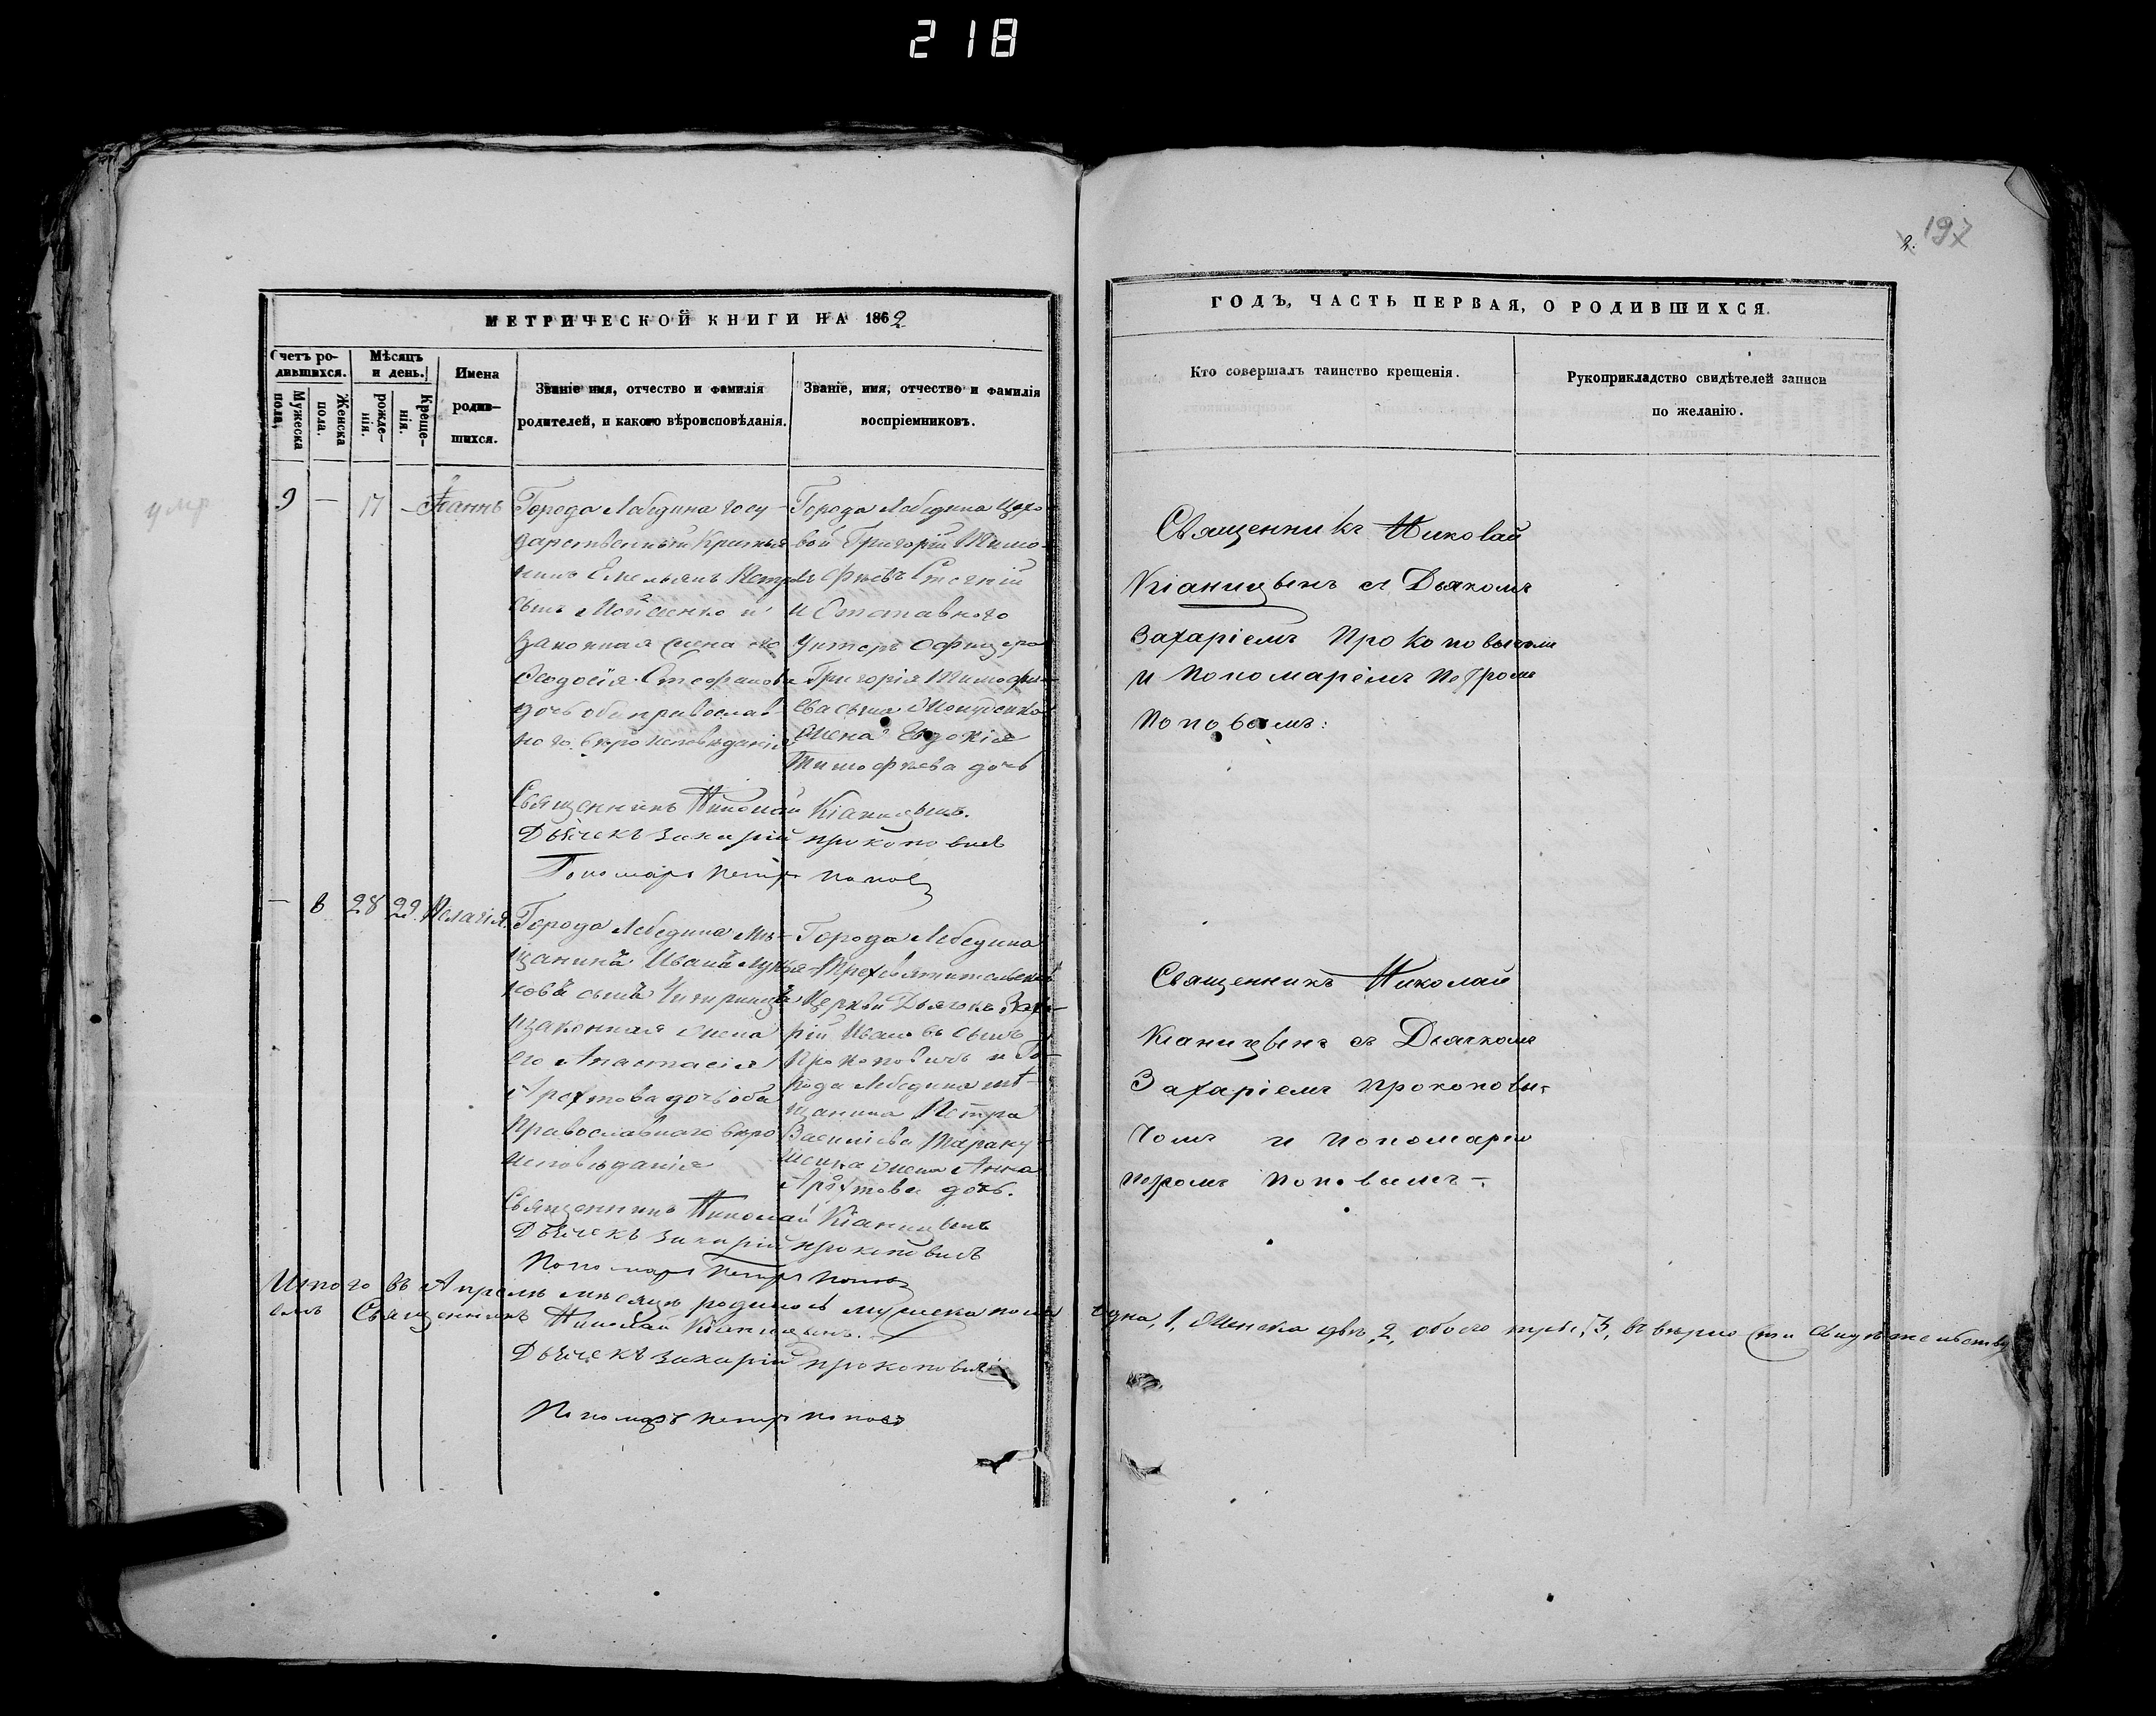 218
197
2.
МЕТРИЧЕСКОЙ КНИГИ НА 1862
Счетъ ро-
дившихся.
Мужеска
пола.
Женска
пола.
Мѣсяцъ
и день.
рожде-
нія.
Креще-
нія.
Имена
родив-
шихся.
Званіе имя, отчество и фамилія
родителей, и какого вѣроисповѣданія.
Званіе, имя, отчество и фамилія
воспріемниковъ.
умр
9 — 17 — Іоаннъ
Города Лебедина госу-
дарственный Крестья-
нинъ Емельянъ Петровъ
сынъ Мойсенко и
законная жена его
Ѳеодосія Стефанова
дочь оба православ-
наго вѣроисповѣданія
Города Лебедина
вой Григорій Тимо-
фѣевъ
и Отставного
Унтеръ Офицера
Григорія Тимофѣ-
ева сына
жена Евдокія
Тимофѣева дочь
Священникъ Николай Кіаницынъ.
Дьячекъ Захарій Прокоповичъ
Пономарь Петръ Поповъ
— 8 28 29 Пелагія
Города Лебедина мѣ-
щанинъ Иванъ Лукья-
новъ сынъ
законная жена
его Анастасія
дочь оба
Православнаго вѣро
исповѣданія
Города Лебедина
Трехсвятительской
Церкви Дьячекъ Заха-
рій Ивановъ сынъ
Прокоповичъ и Го-
рода Лебедина мѣ-
щанина Петра
Василіева
жена Анна
дочь.
Священникъ Николай Кіаницынъ
Дьячекъ Захарій Прокоповичъ
Пономарь Петръ Поповъ
Итого въ Апрѣлѣ мѣсяцѣ родилось мужеска пола
емъ Священникъ Николай Кіаницынъ.
Дьячекъ Захарій Прокоповичъ
Пономарь Петръ Поповъ
ГОДЪ, ЧАСТЬ ПЕРВАЯ, О РОДИВШИХСЯ.
Кто совершалъ таинство крещенія.
Рукоприкладство свидѣтелей записи
по желанію.
Священникъ Николай
Кіаницынъ съ Дьякомъ
Захаріемъ Прокоповичемъ
и Пономаремъ Петромъ
Поповымъ:
Священникъ Николай
Кіаницынъ съ Дьячкомъ
Захаріемъ Прокопови-
чомъ и Пономарем
Петромъ Поповымъ —
одна, 1, Женска двѣ, 2, обоего три, 3, въ вѣрности свидѣтельству